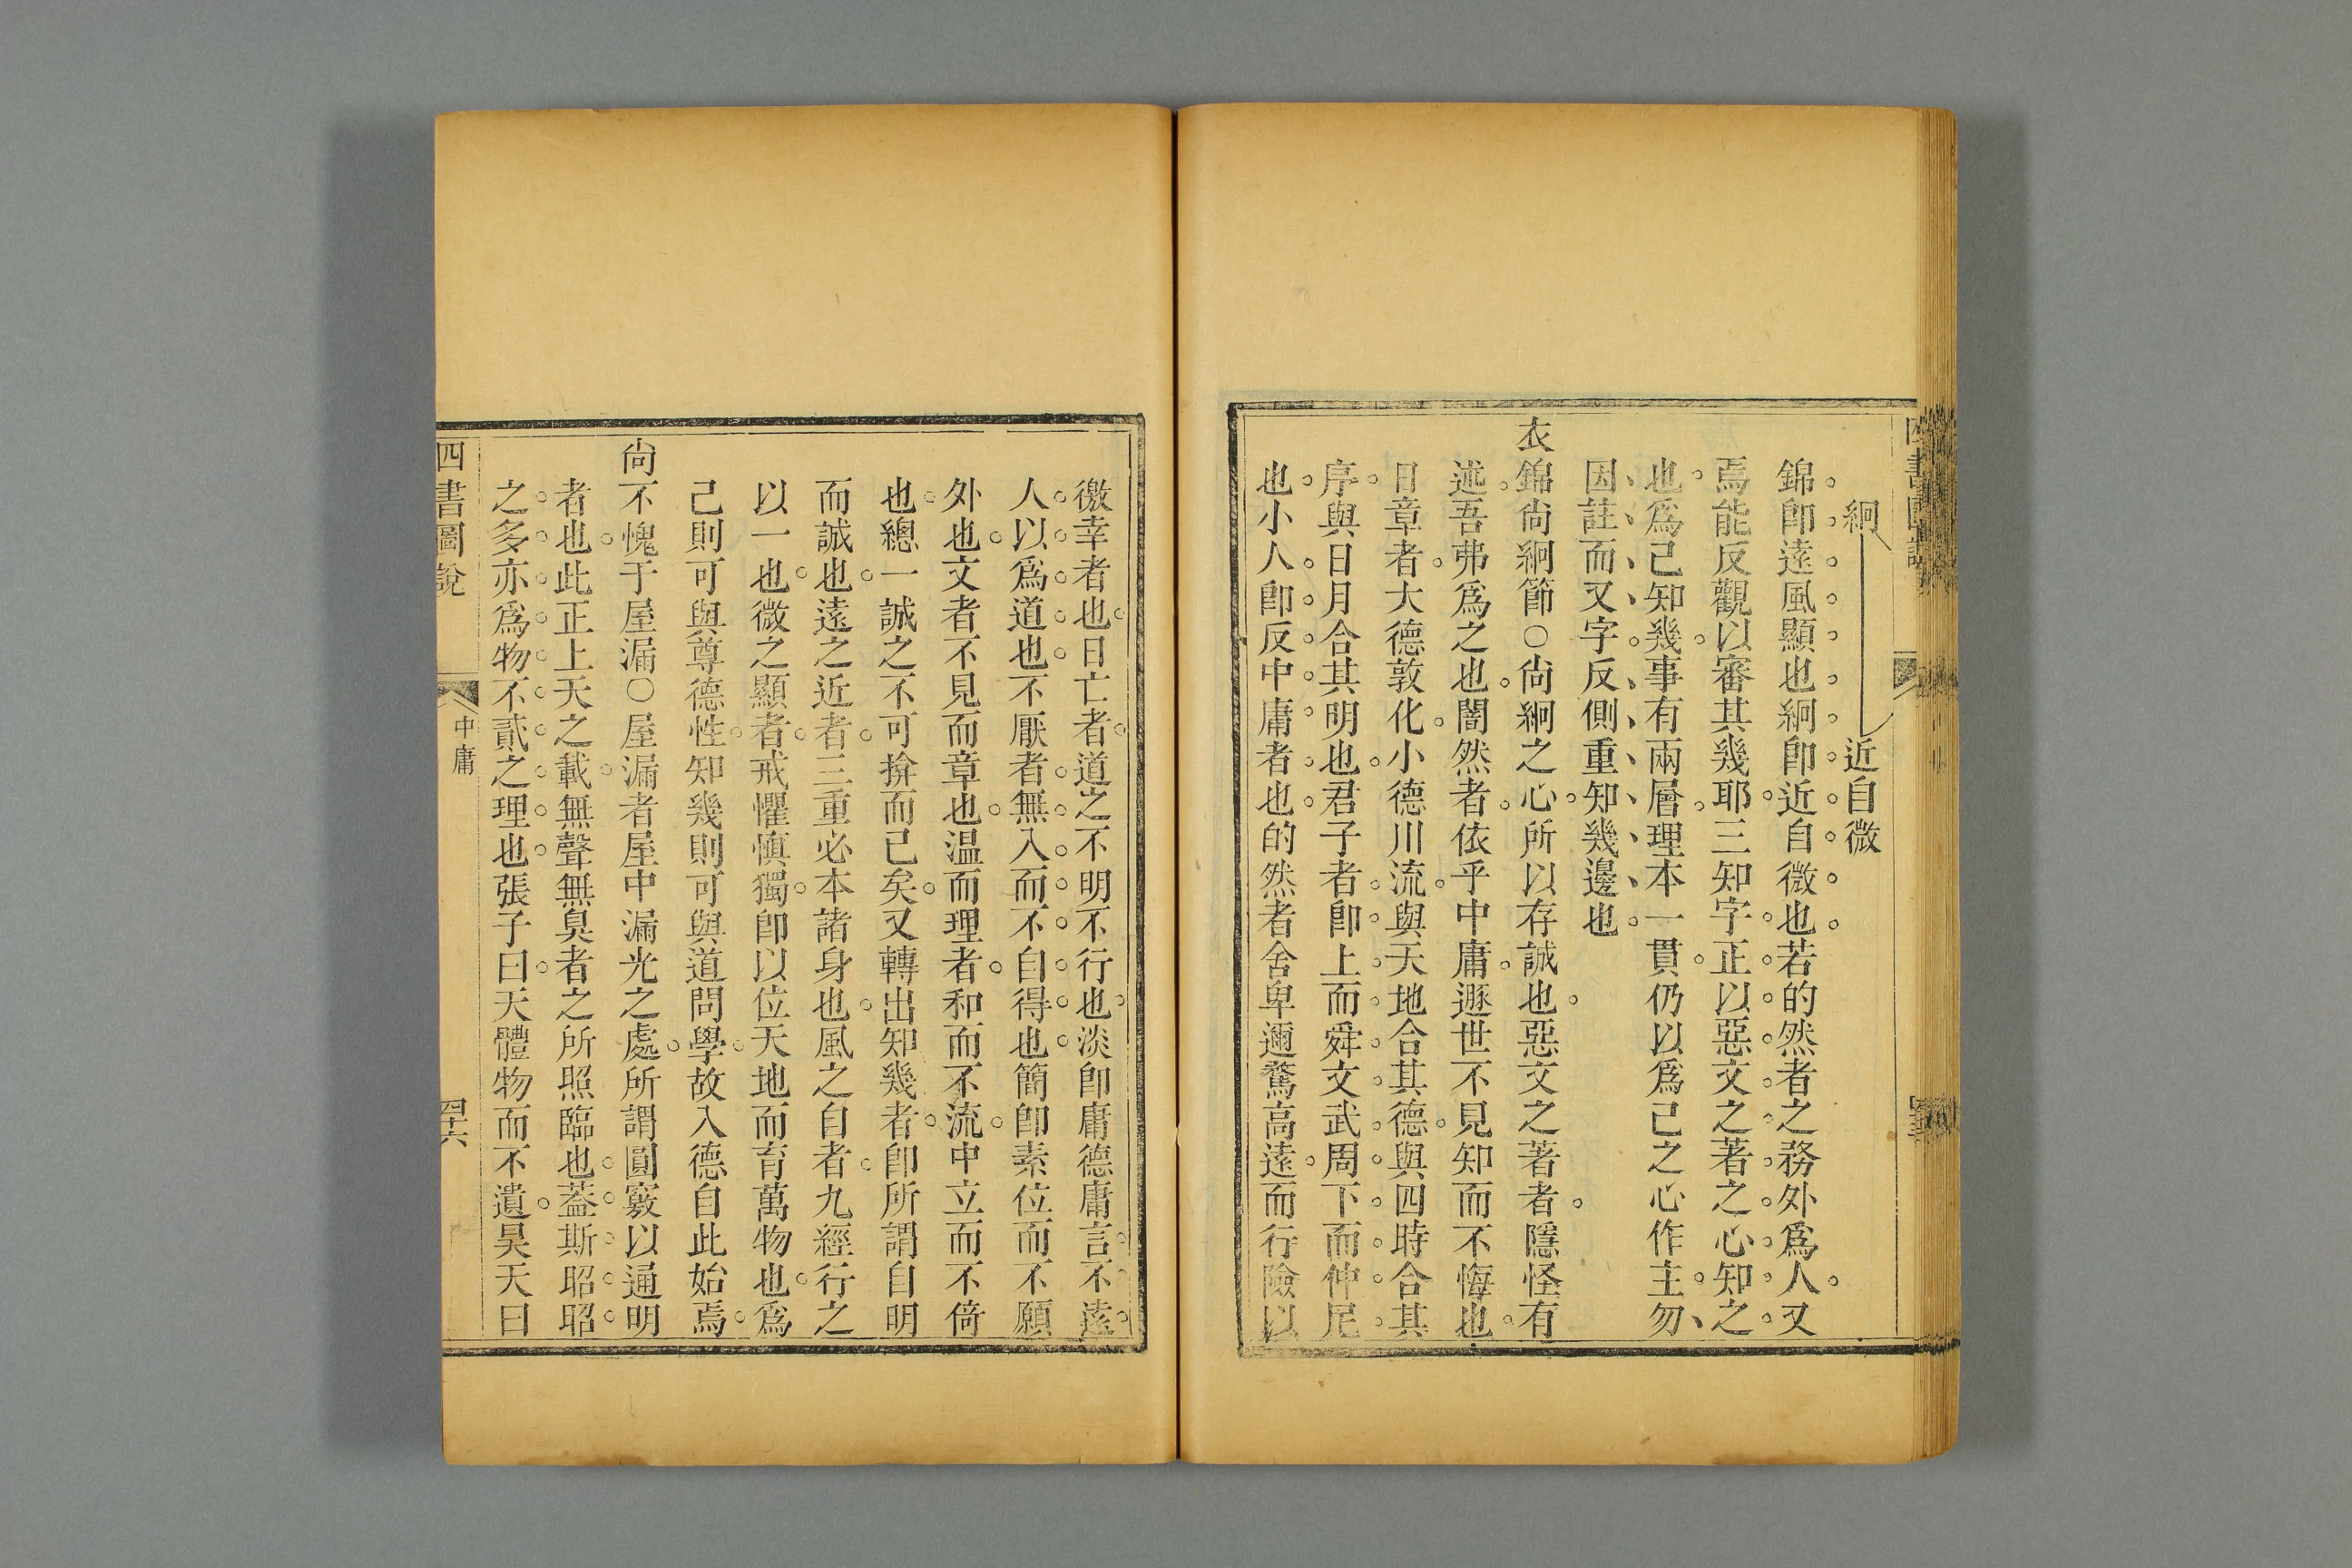 絅 近自微
錦卽遠風顯也絅卽近自微也若的然者之務外爲人又
焉能反觀以審其幾耶三知字正以惡文之著之心知之
也爲己知幾事有兩層理本一貫仍以爲己之心作主勿
因註而又字反側重知幾邊也
衣錦尙絅節○尙絅之心所以存誠也惡文之著者隱怪有
述吾弗爲之也闇然者依乎中庸遯世不見知而不悔也
日章者大德敦化小德川流與天地合其德與四時合其
序與日月合其明也君子者卽上而舜文武周下而仲尼
也小人卽反中庸者也的然者舍卑邇騖高遠而行險以
徼幸者也日亡者道之不明不行也淡卽庸德庸言不遠
人以爲道也不厭者無入而不自得也簡卽素位而不願
外也文者不見而章也温而理者和而不流中立而不倚
也總一誠之不可揜而已矣又轉出知幾者卽所謂自明
而誠也遠之近者三重必本諸身也風之自者九經行之
以一也微之顯者戒懼慎獨卽以位天地而育萬物也爲
己則可與尊德性知幾則可與道問學故入德自此始焉
尙不愧于屋漏○屋漏者屋中漏光之處所謂圓竅以通明
者也此正上天之載無聲無臭者之所照臨也蓋斯昭昭
之多亦爲物不貳之理也張子曰天體物而不遺昊天曰
四書圖說 中庸 四十六